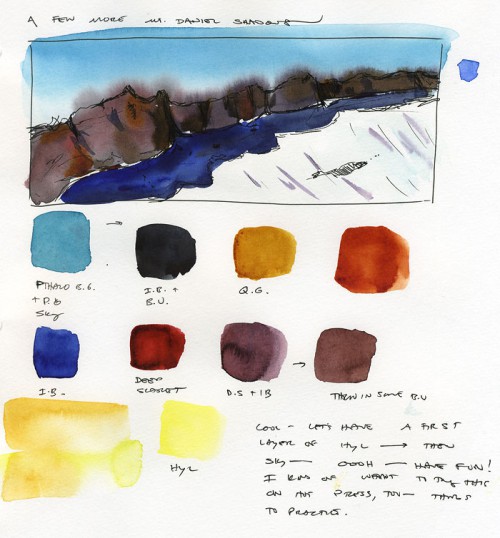 A FEW MORE M. DANIEL SHADOWS
PTHALO B.G.
+ P.B
SKY
I.B. +
B.U.
Q.G.
I.B.
DEEP
SCARLET
D.S + IB
THROW IN SOME B.U
HYL
COOL - LETS HAVE A FIRST
LAYER OF HYL → THEN
SKY — OOOH — HAVE FUN!
I KIND OF WANT TO TRY THIS
ON HOT PRESS, TOO — THINGS
TO PRACTICE.